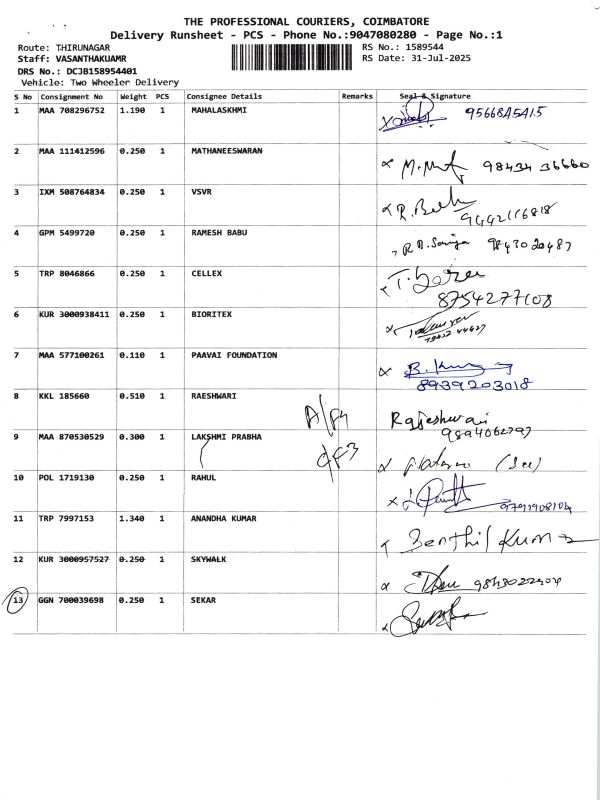 THE PROFESSIONAL COURIERS, COIMBATORE
Delivery Runsheet - PCS - Phone No.:9047080280 - Page No.:1
Route: THIRUNAGAR
RS No.: 1589544
Staff: VASANTHAKUAMR
RS Date: 31-Jul-2025
DRS No.: DCJB158954401
Vehicle: Two Wheeler Delivery
S No Consignment No Weight PCS Consignee Details Remarks Seal & Signature
1 MAA 708296752 1.190 1 MAHALASKHMI
2 MAA 111412596 0.250 1 MATHANEESWARAN 98434 36660
3 IXM 508764834 0.250 1 VSVR
4 GPM 5499720 0.250 1 RAMESH BABU 9843020487
5 TRP 8046866 0.250 1 CELLEX
8754277108
6 KUR 3000938411 0.250 1 BIORITEX
7 MAA 577100261 0.110 1 PAAVAI FOUNDATION
8939203018
8 KKL 185660 0.510 1 RAESHWARI Rajeshwari
9 MAA 870530529 0.300 1 LAKSHMI PRABHA
10 POL 1719130 0.250 1 RAHUL
11 TRP 7997153 1.340 1 ANANDHA KUMAR Senthil Kumar
12 KUR 3000957527 0.250 1 SKYWALK
13 GGN 700039698 0.250 1 SEKAR